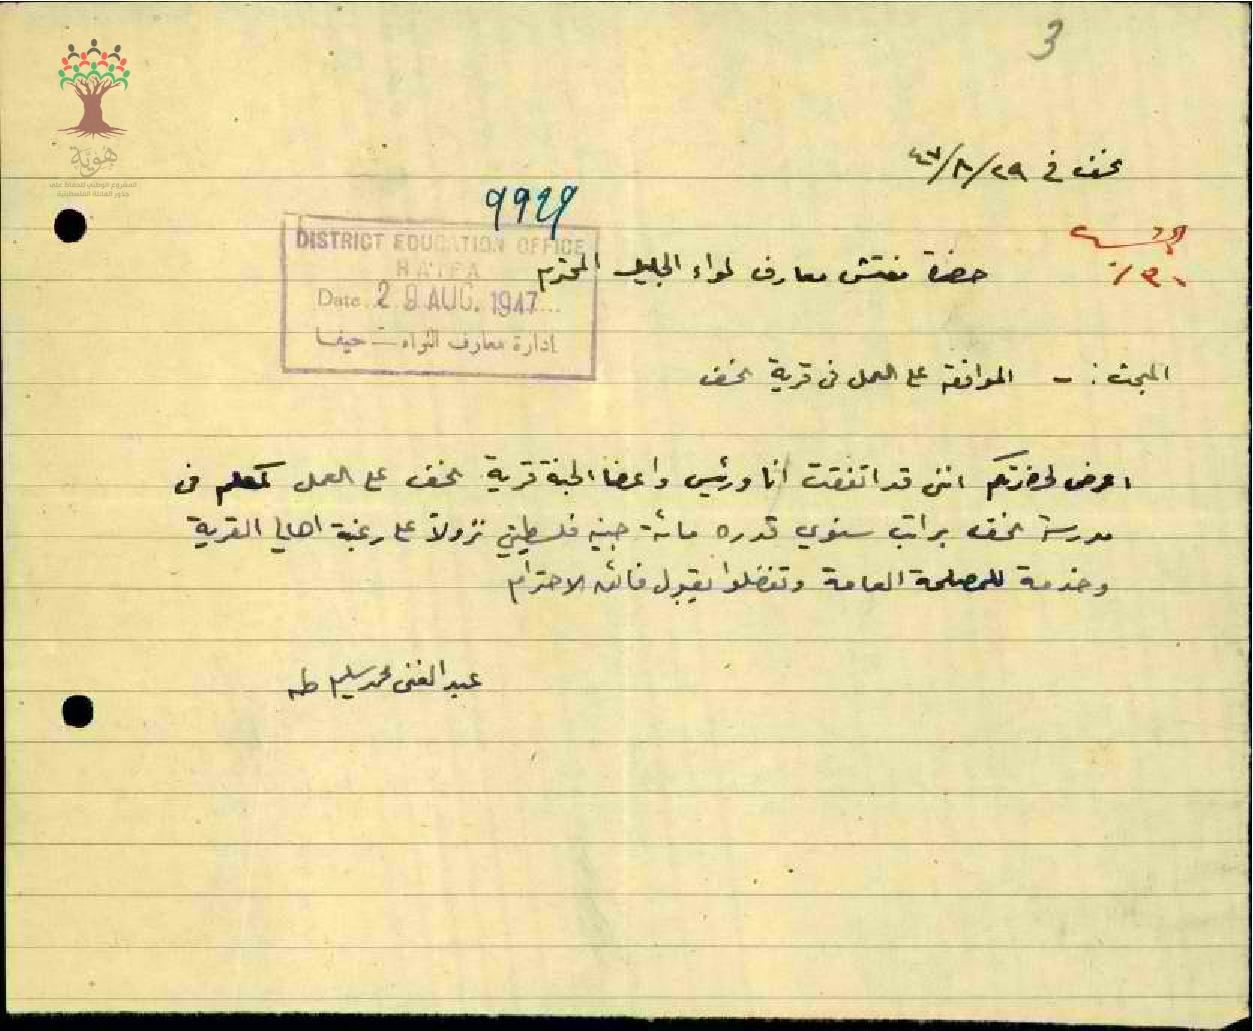 3
هوية
المشروع الوطني للحفاظ على
جذور العائلة الفلسطينية
نحف في ٢٩/٨/٤٧
9929
DISTRICT EDUCATION OFFICE
HAIFA
Date 29 AUG. 1947
ادارة معارف اللواء – حيفا
حضرة مفتش معارف لواء الجليل المحترم
المبحث : - الموافقة على العمل في قرية نحف
اعرض لحضرتكم انني قد اتفقت انا ورئيس واعضا لجنة قرية نحف على العمل كمعلم في
مدرسة نحف براتب سنوي قدره مائة جنيه فلسطيني نزولاً على رغبة اهالي القرية
وخدمة للمصلحة العامة وتفضلوا بقبول فائق الاحترام
عبد الغني محمد سليم طه